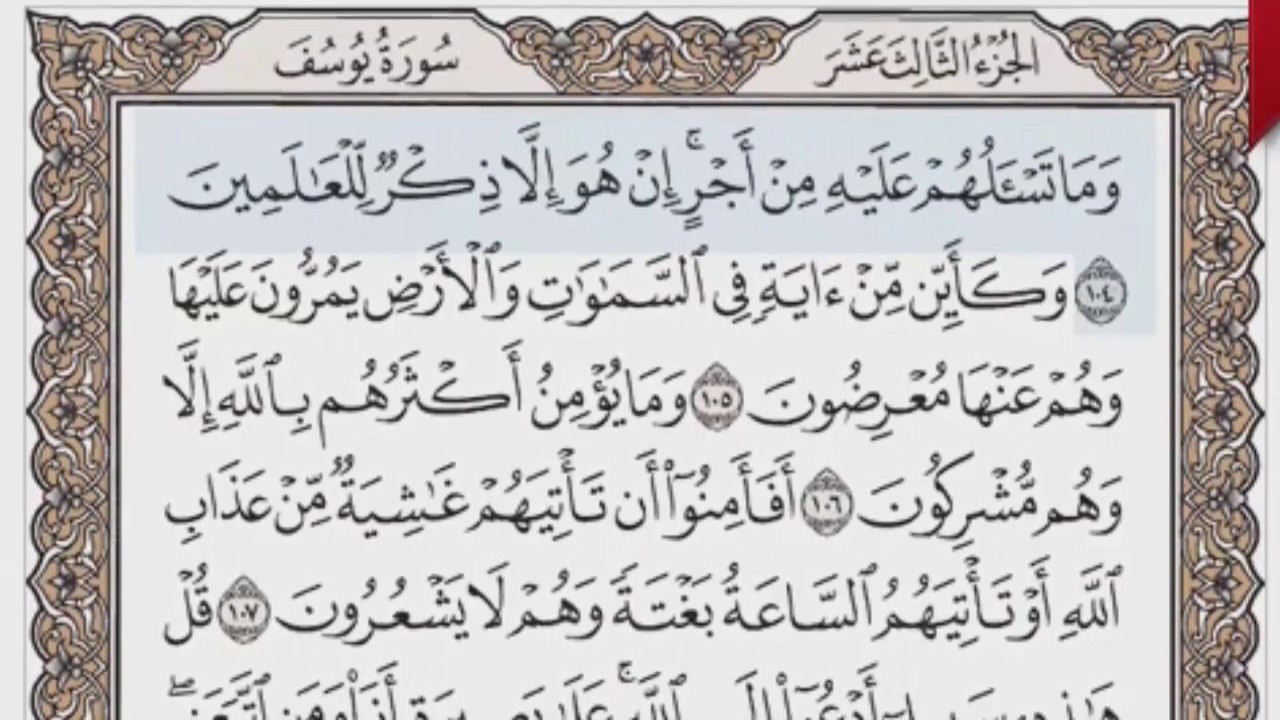 الجُزْءُ الثَّالِثَ عَشَرَ
سُورَةُ يُوسُفَ
وَمَا تَسْـَٔلُهُمْ عَلَيْهِ مِنْ أَجْرٍ ۚ إِنْ هُوَ إِلَّا ذِكْرٌ لِّلْعَٰلَمِينَ
۝١٠٤ وَكَأَيِّن مِّنْ ءَايَةٍ فِى ٱلسَّمَٰوَٰتِ وَٱلْأَرْضِ يَمُرُّونَ عَلَيْهَا
وَهُمْ عَنْهَا مُعْرِضُونَ ۝١٠٥ وَمَا يُؤْمِنُ أَكْثَرُهُم بِٱللَّهِ إِلَّا
وَهُم مُّشْرِكُونَ ۝١٠٦ أَفَأَمِنُوٓا۟ أَن تَأْتِيَهُمْ غَٰشِيَةٌ مِّنْ عَذَابِ
ٱللَّهِ أَوْ تَأْتِيَهُمُ ٱلسَّاعَةُ بَغْتَةً وَهُمْ لَا يَشْعُرُونَ ۝١٠٧ قُلْ